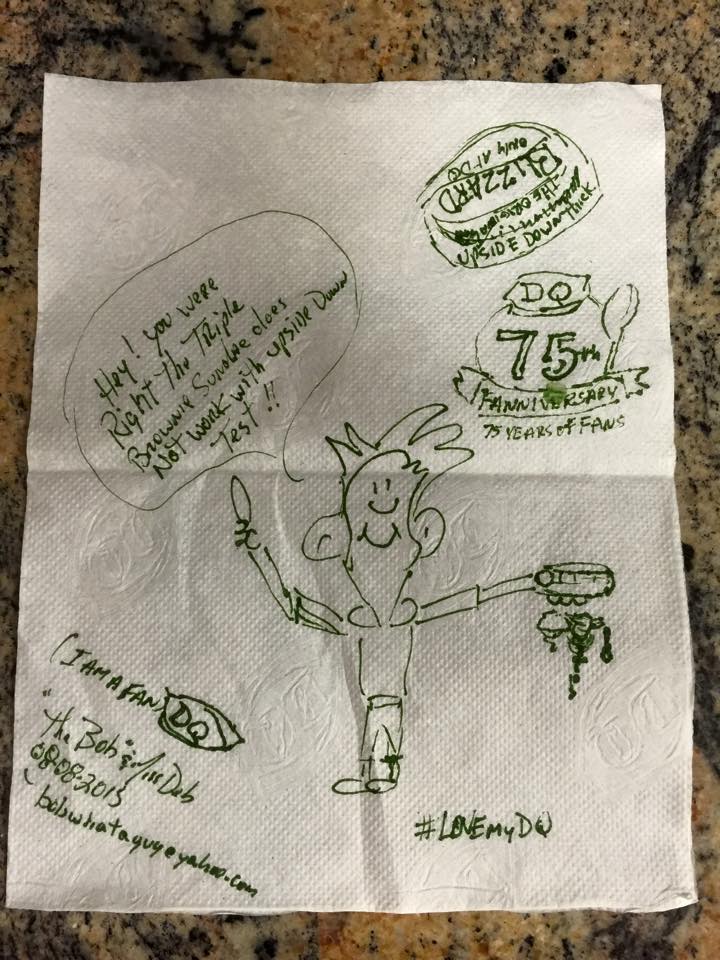 Hey! you were
Right the Triple
Brownie Sundae does
Not work with upside Down
Test!!
Only AT DQ
BLIZZARD
UPSIDE DOWN Thick
DQ
75th
FANNIVERSARY
75 YEARS of FANS
(I AM A FAN)
DQ
"the Bob" & Miss Deb
08-08-2015
bobwhataguy@yahoo.com
#LOVEmyDQ